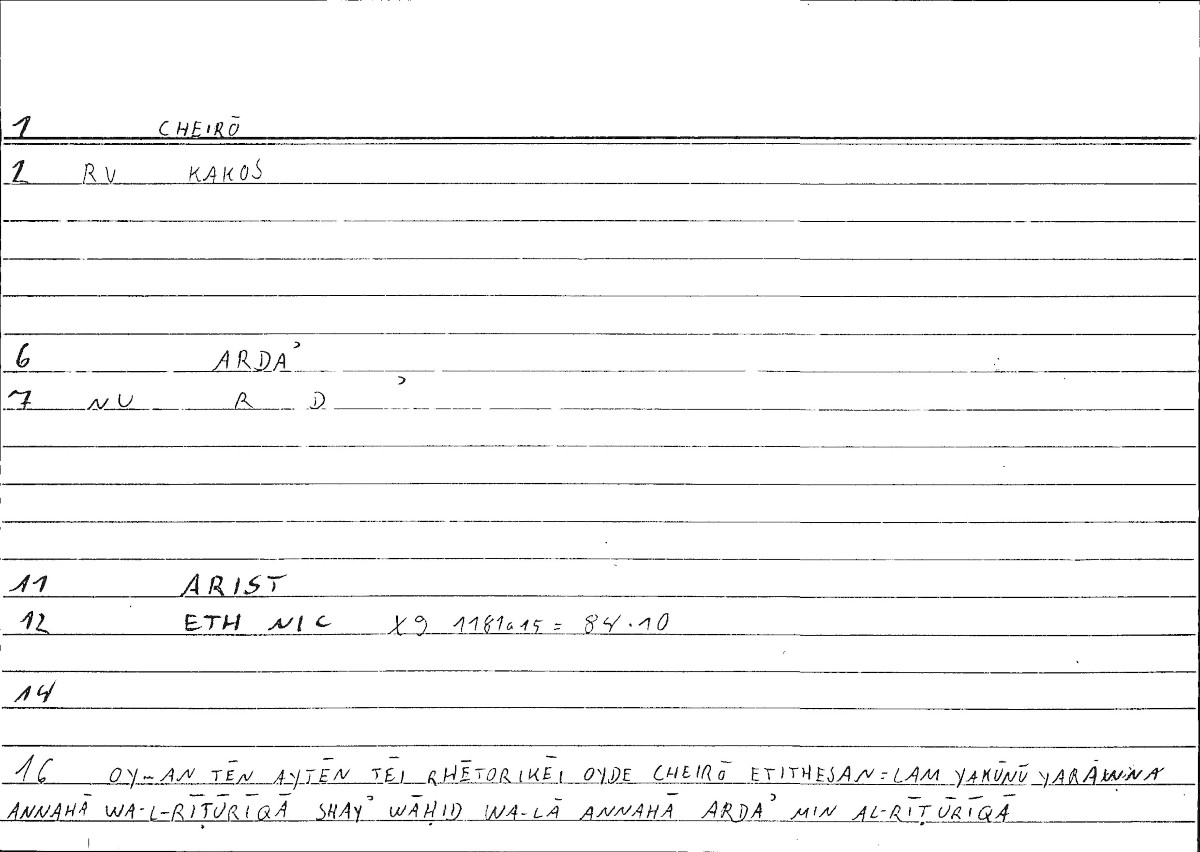 1 CHEIRŌ
2 RV KAKOS
6 ARDAʾ
7 NU R D ʾ
11 ARIST
12 ETH NIC X9 1181a15 = 84.10
14
16 OY-AN TĒN AYTĒN TĒI RHĒTORIKĒI OYDE CHEIRŌ ETITHESAN = LAM YAKŪNŪ
ANNAHĀ WA-L-RĪṬŪRĪQĀ SHAYʾ WĀḤID WA-LĀ ANNAHĀ ARDAʾ MIN AL-RĪṬŪRĪQĀ